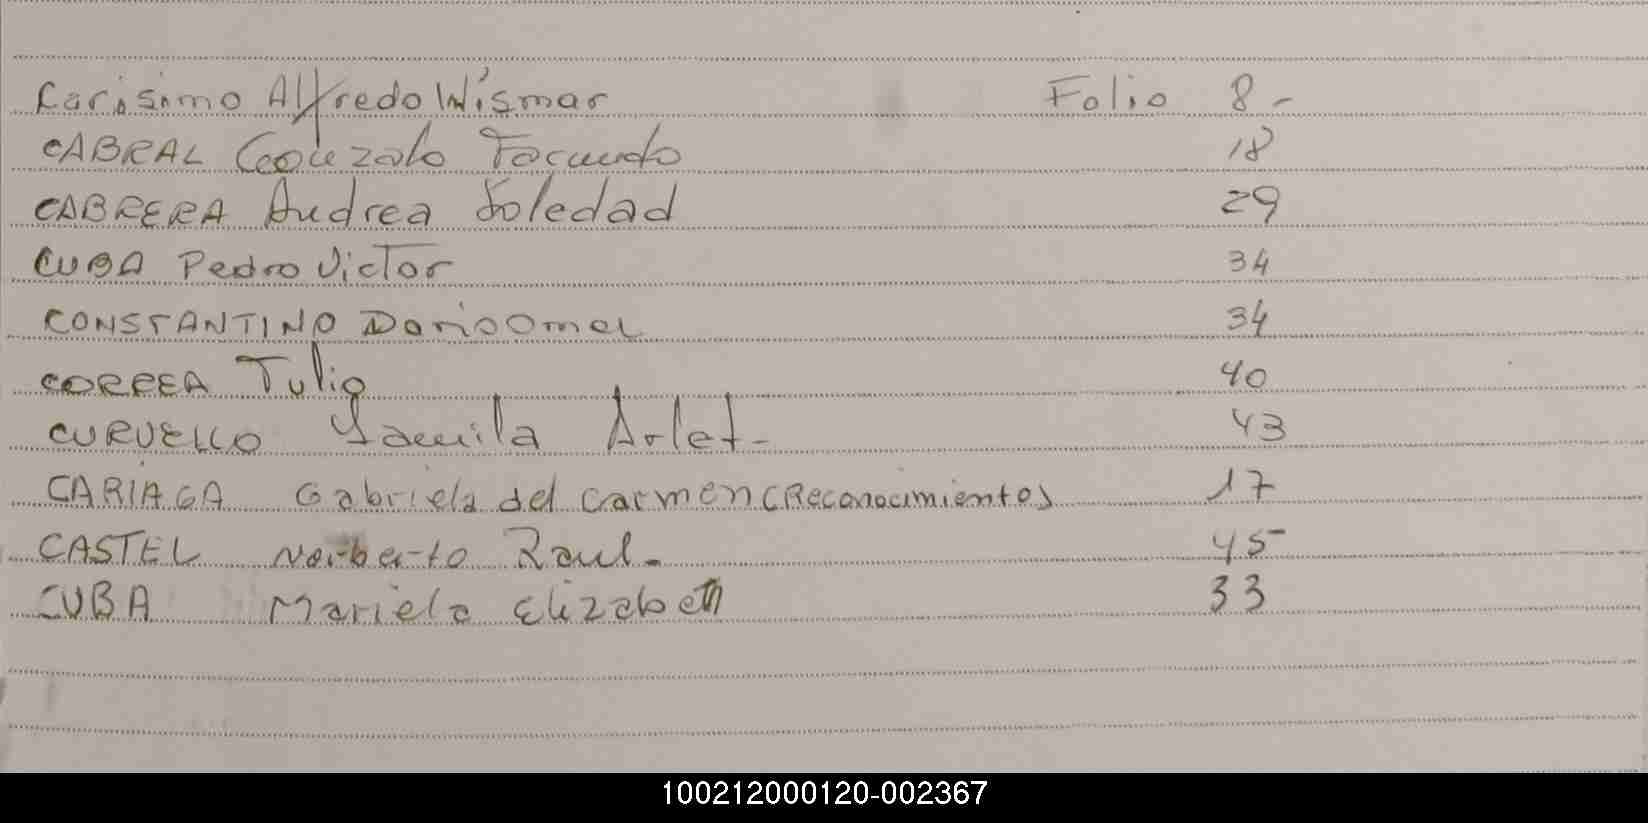 Carisimo Alfredo Wismar Folio 8-
CABRAL Gonzalo Facundo 18
CABRERA Andrea Soledad 29
CUBA Pedro Victor 34
CONSTANTINO Dario Omar 34
CORREA Tulio 40
CURVELLO Yamila Arlet- 43
CARIAGA Gabriela del Carmen (Reconocimientos) 17
CASTEL Norberto Raul- 45
CUBA Mariela Elizabeth 33
100212000120-002367